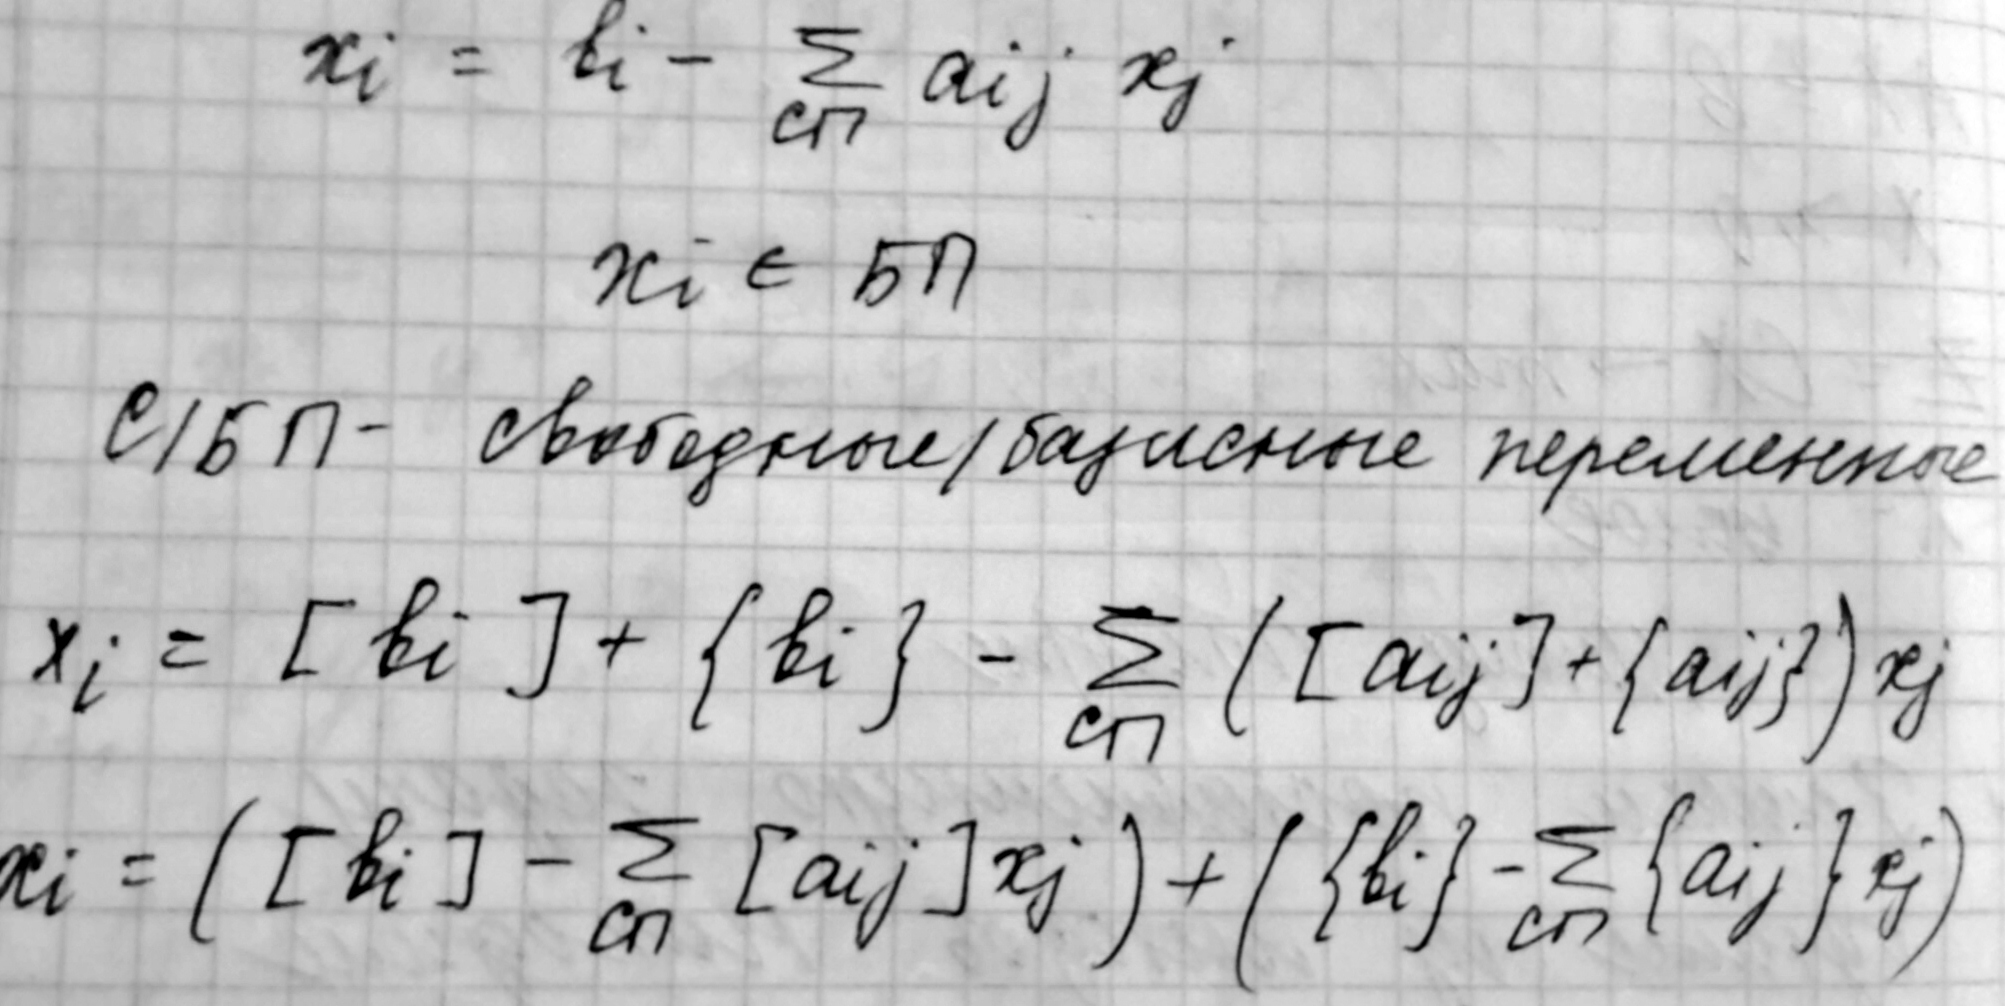 xi = bi - Σ aij xj
СП
xi ∈ БП
С/БП - свободные/базисные переменные
xi = [bi] + {bi} - Σ ([aij] + {aij}) xj
СП
xi = ([bi] - Σ [aij] xj) + ({bi} - Σ {aij} xj)
СП СП